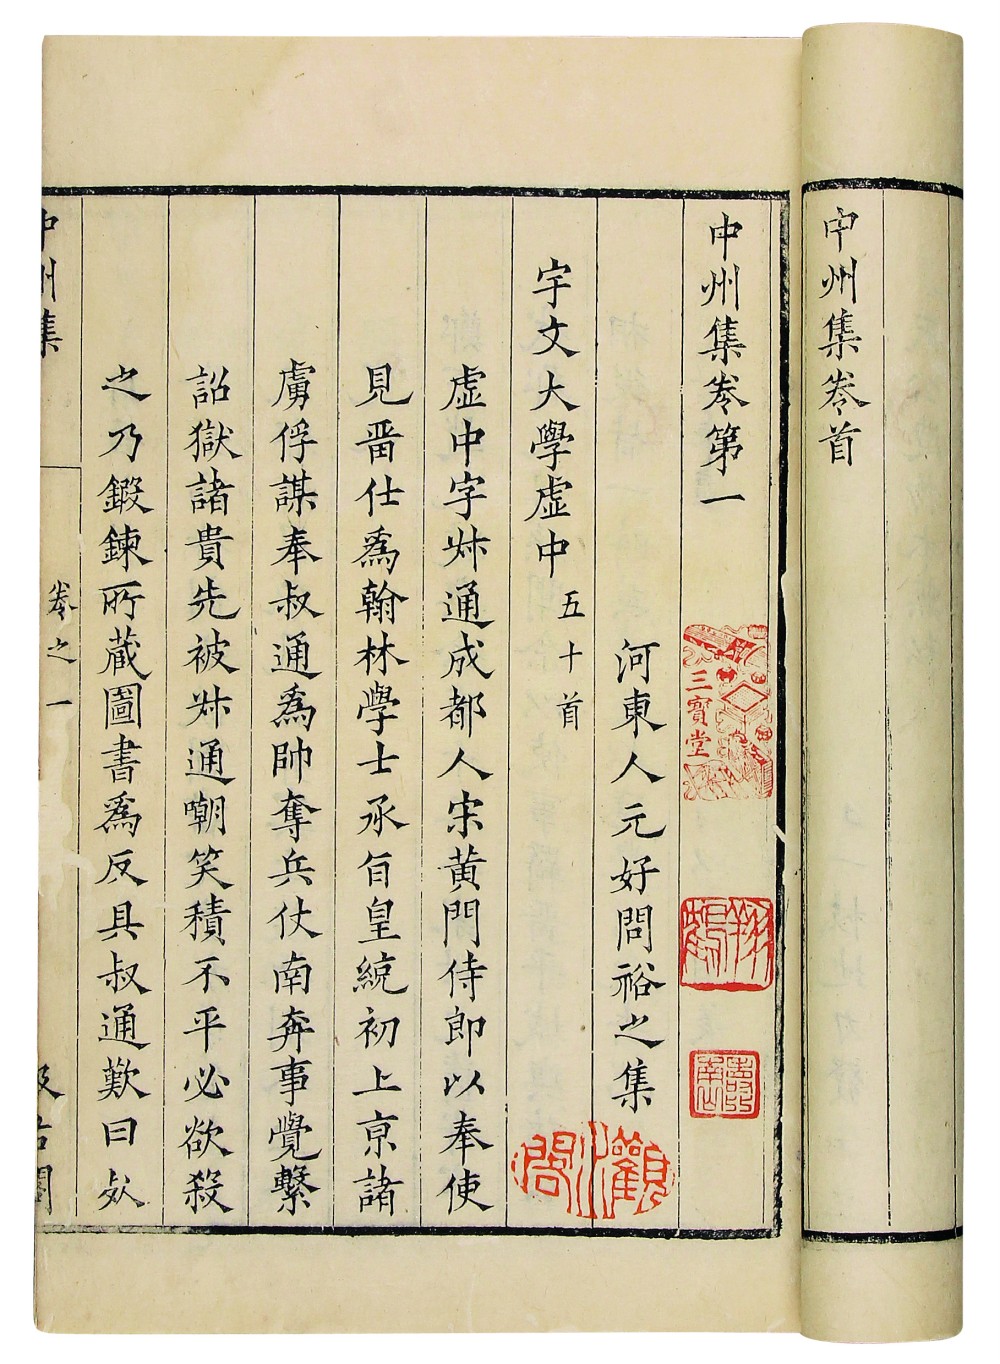 中州集卷首
中州集卷第一
河東人元好問裕之集
宇文大學虛中 五十首
虛中字叔通成都人宋黃門侍郎以奉使
見畱仕爲翰林學士承旨皇統初上京諸
虜俘謀奉叔通爲帥奪兵仗南奔事覺繫
詔獄諸貴先被叔通嘲笑積不平必欲殺
之乃鍛鍊所蔵圖書爲反具叔通歎曰死
中州集
卷之一
汲古閣
三寶堂
觀
閣